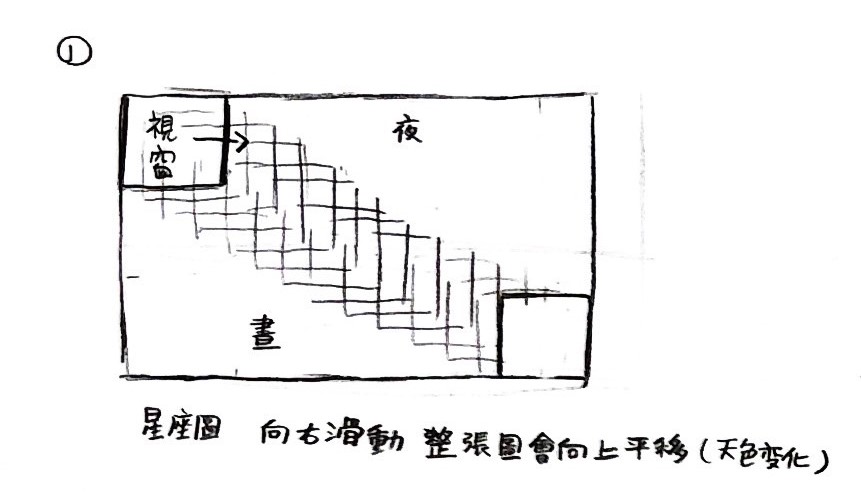 ①
視
窗
夜
晝
星座圖 向右滑動 整張圖會向上平移(天色变化)